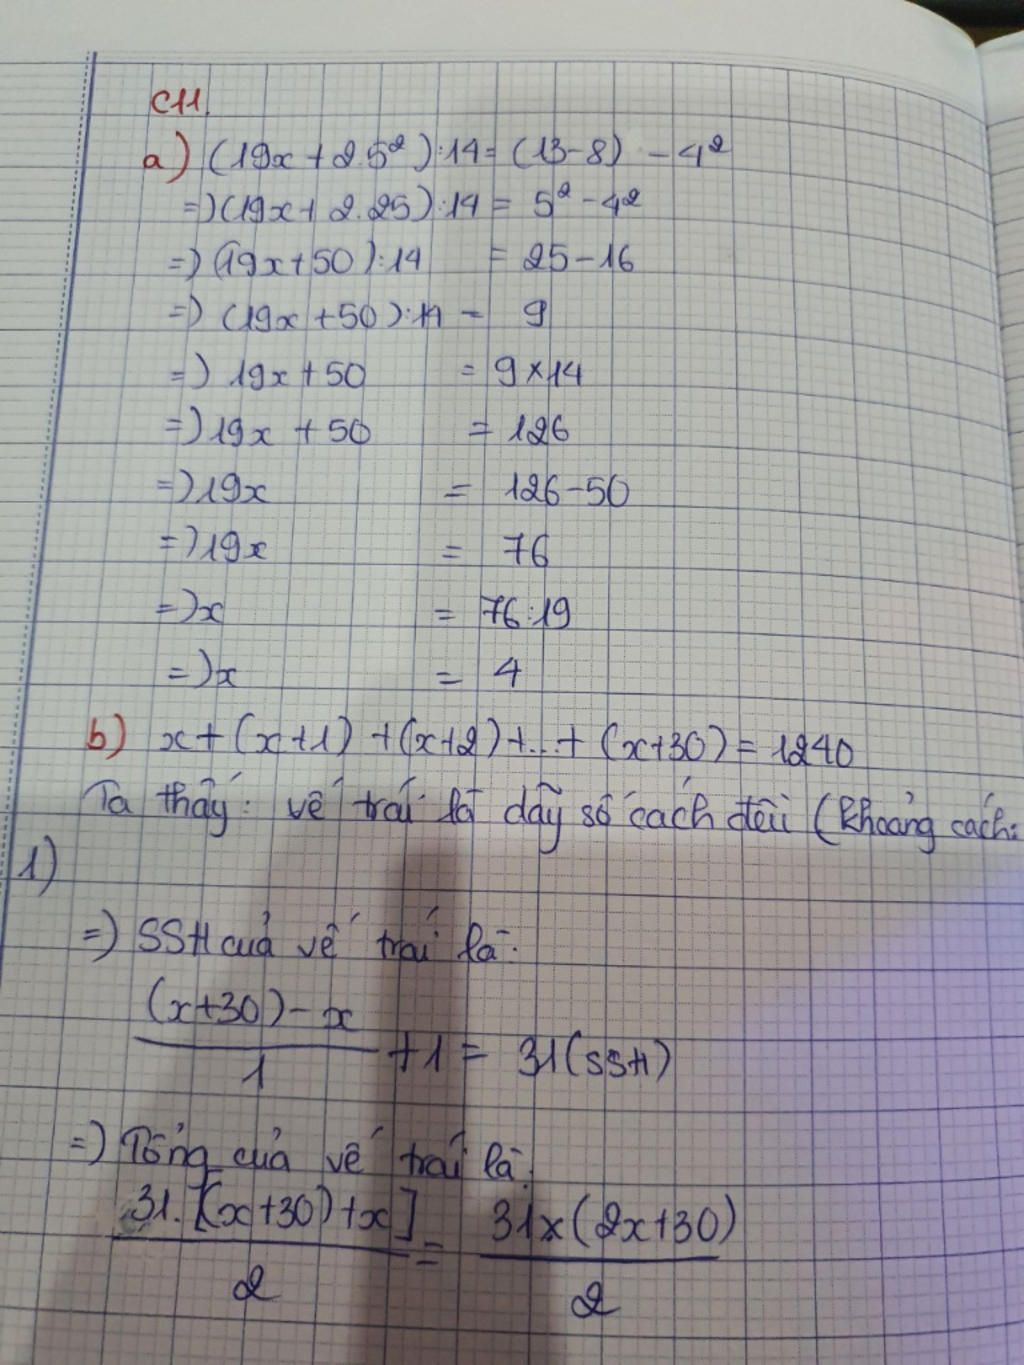 CH.
a) (19x + 2.5²):14 = (13-8) - 4²
=> (19x + 2.25):14 = 5² - 4²
=> (19x+50):14 = 25-16
=> (19x+50):14 = 9
=> 19x+50 = 9×14
=> 19x + 50 = 126
=> 19x = 126-50
=> 19x = 76
=> x = 76:19
=> x = 4
b) x + (x+1) + (x+2) + ... + (x+30) = 1240
Ta thấy: vế trái là dãy số cách đều (khoảng cách:
1)
=> SSH của vế trái là:
((x+30)-x)/1 + 1 = 31(SSH)
=> Tổng của vế trái là:
31.[(x+30)+x]/2 = 31×(2x+30)/2